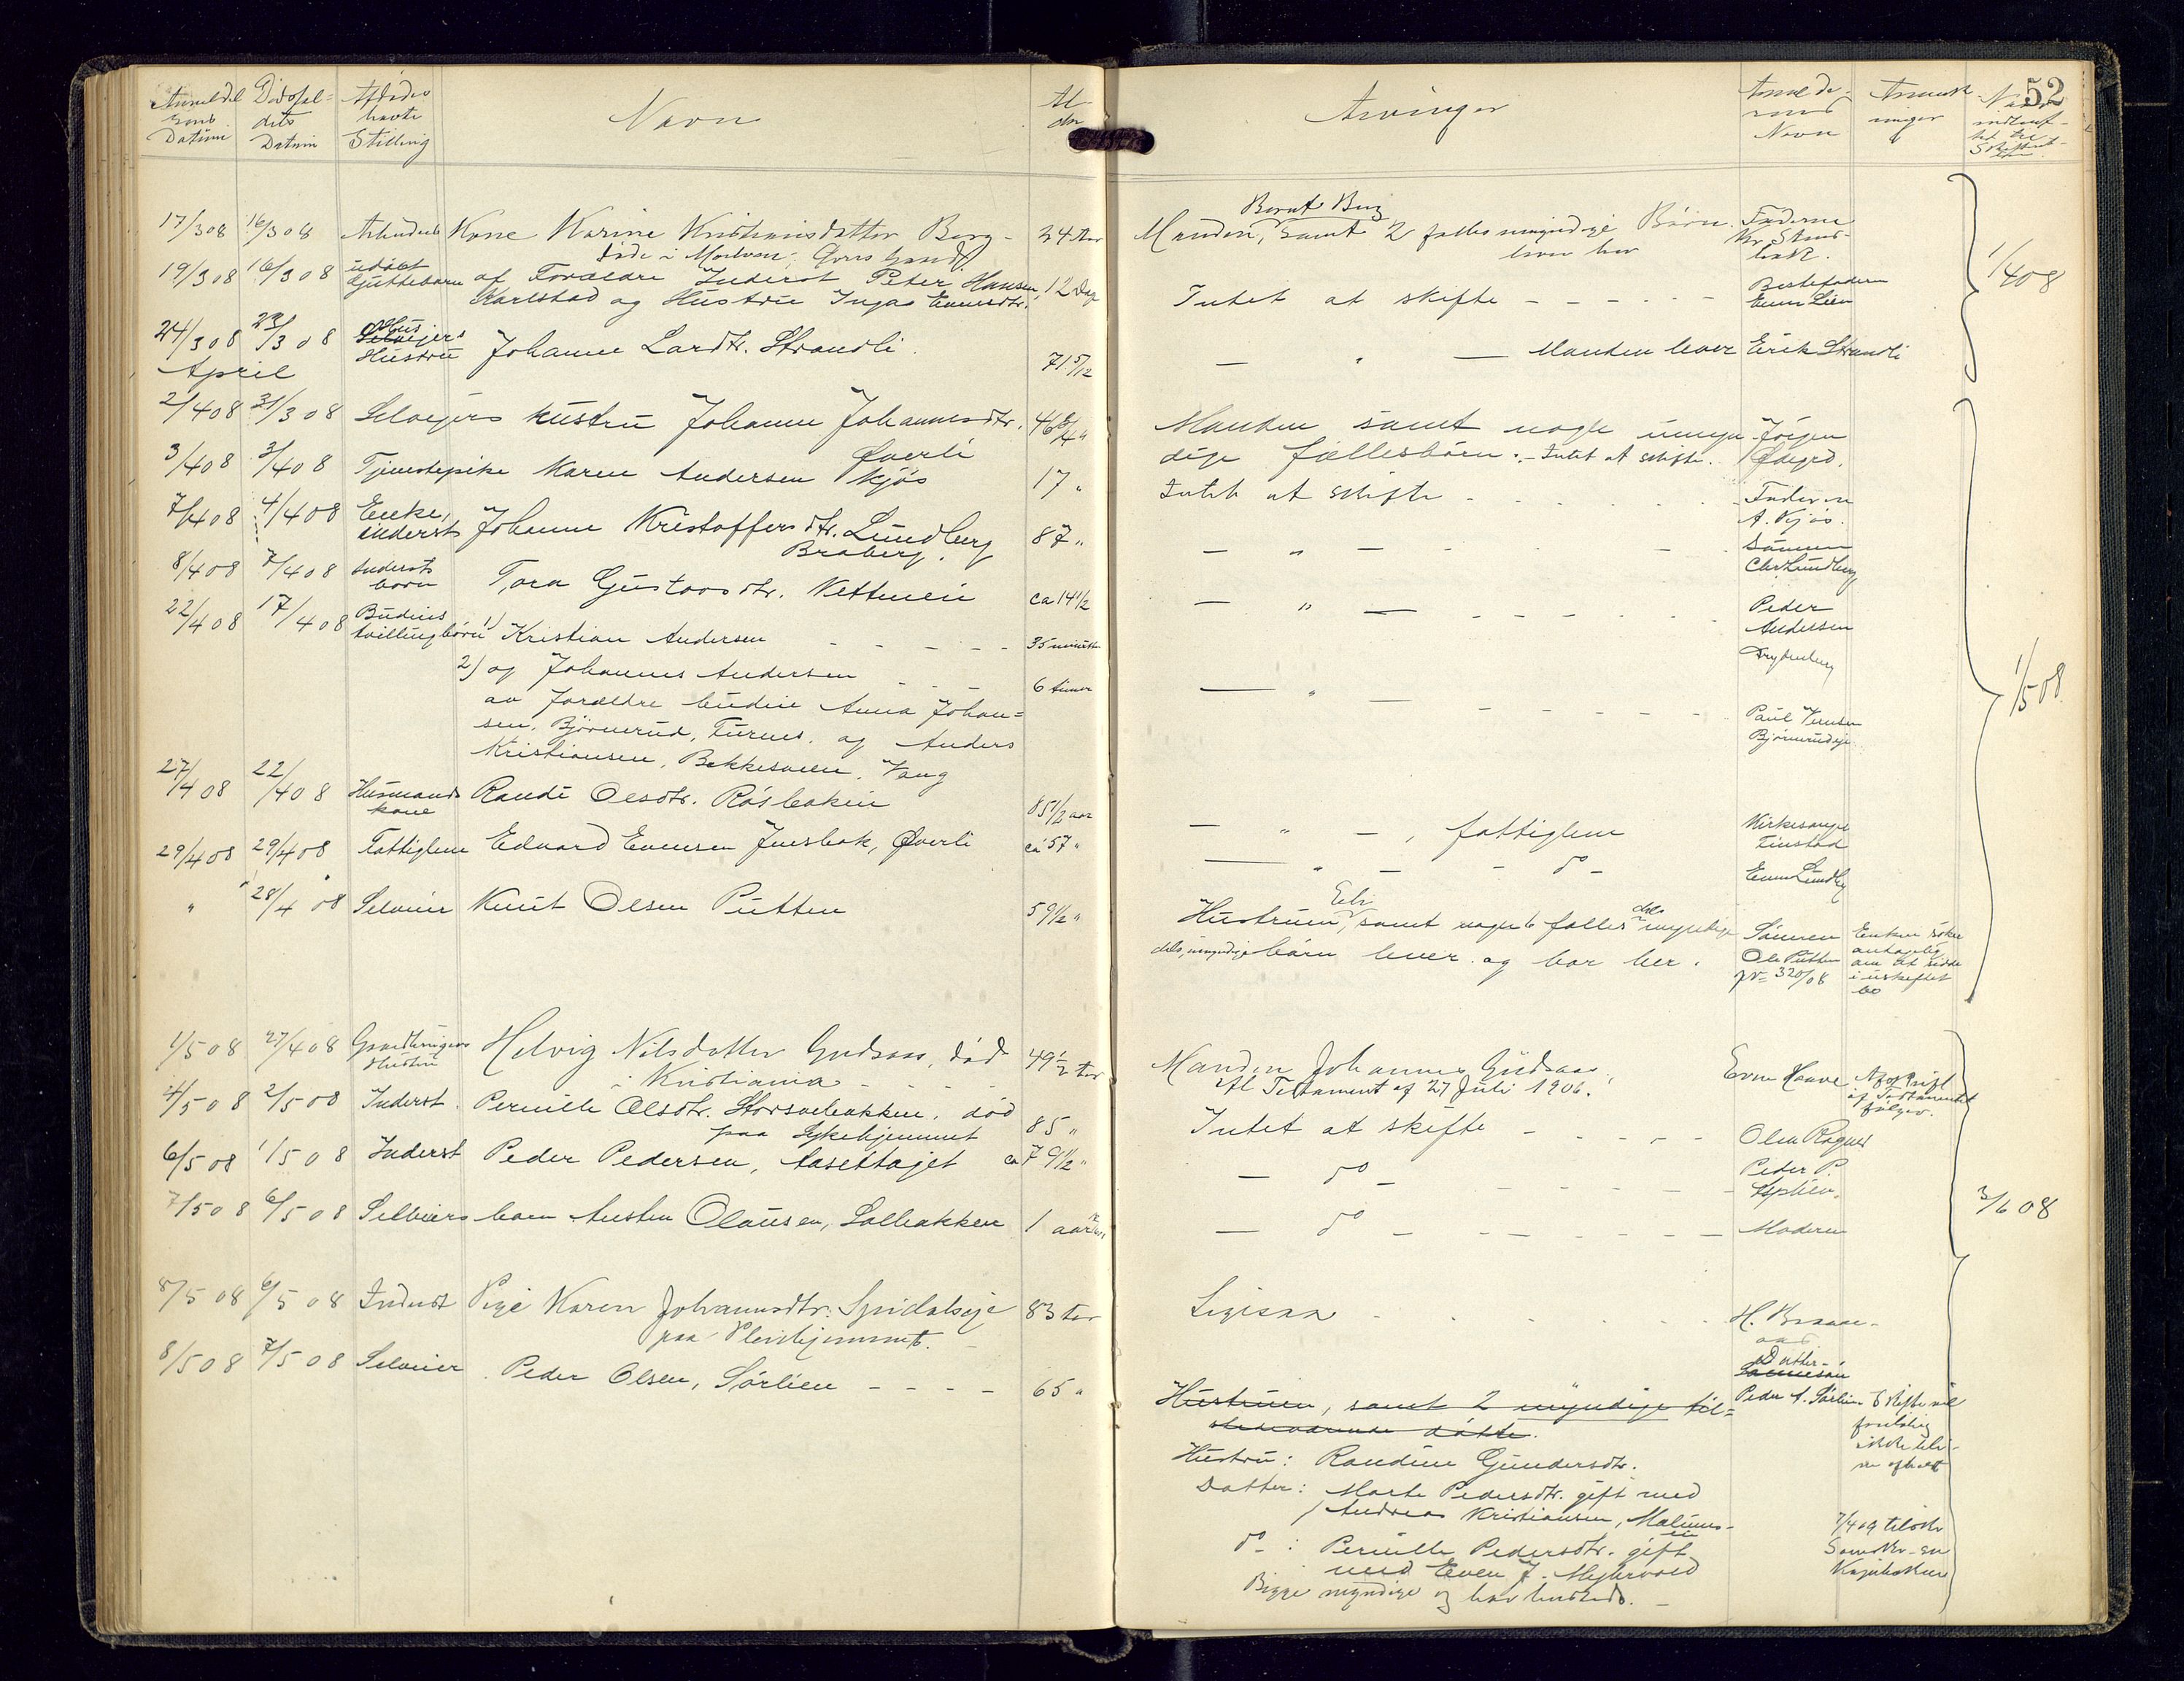 Anmeldel
sens
Datum
Dødsfal-
dets
Datum
Afdødes
havte
Stilling
Navn
Al
der
17/3 08 16/3 08 Arbeiders Kone Karine Kristiansdatter Berg - 34 Aar
19/3 08 16/3 08 udøbt
Guttebarn af Forældre Inderst Peter Hansen 12 Dage
Karlstad og Hustru Inga Evensdtr.
24/3 08 23/3 08 Hus
Selveiers
Hustru Johanne Larsdtr. Strandli 71 5/12
April
2/4 08 31/3 08 Selveiers hustru Johanne Johannesdtr. 46
Øverli
3/4 08 3/4 08 Tjenestepike Karen Andersen Kjøs 17 "
7/4 08 4/4 08 Enke,
inderst Johanne Kristoffersdtr. Lundberg 87 "
Braberg.
8/4 08 7/4 08 Inderst
barn Tora Gustavsdtr. Nettmen ca 14 1/2
22/4 08 17/4 08 Budeies
tvillingbørn 1) Kristian Andersen - - - - - 35 minutter
2) og Johannes Andersen - - - 6 timer
av forældre budeie Anna Johan=
sen, Bjørnerud, Furnes, og Anders
Kristiansen, Bekkesveen, Vang
27/4 08 22/4 08 Husmands
kone Randi Olsdtr. Røsbakken 85 1/2 aar
29/4 08 29/4 08 Fattiglem Edvard Evensen Jensbak, Øverli ca 57 "
" 28/4 08 Selveier Knut Olsen Putten 59 1/2 "
1/5 08 27/4 08 Gaardbrugers
Hustru Helvig Nilsdatter Gudsaas, død 49 1/2 Aar
i Kristiania - - - -
4/5 08 2/5 08 Inderst Pernille Olsdtr. Storsvebakken, død 85 "
paa Sykehjemmet
6/5 08 1/5 08 Inderst Peder Pedersen, Aasettajet ca 79 1/2 "
7/5 08 6/5 08 Selveiers barn Austen Olausen, Solbakken 1 aar
8/5 08 6/5 08 Inderst Pige Karen Johannesdtr. Spidalseje 83 Aar
paa Pleiehjemmet.
8/5 08 7/5 08 Selveier Peder Olsen, Sørlien - - - - 65 "
52
Arvinger
Anmelde-
rens
Navn
Anmærk-
ninger
Bernt Berg
Manden, samt 2 fælles umyndige Børn. Faderen
Intet at skifte - - - - - Bestefaderen
Even Lien
— " — Manden lever Erik Strandli
1/4 08
Manden samt nogle umyn- Jørgen
dige fællesbørn. - Intet at skifte.
Intet at skifte - Faderen
A. Kjøs.
— " — Sønnen
Chr. Lundberg
— " — Peder
Andersen
— " — Paul
— " — , fattiglem Kirkesanger
Finstad
— " — do — Even Lundby
1/5 08
Hustruen, samt nogle fælles dels myndige Sønnen Enken søker
dels umyndige børn lever og bor her. Ole Putten
jr 320/08 om at sidde
i uskiftet
bo
Manden Johannes Gudsaas,
Af Testament af 27 Juli 1906. Afskrift
af Testamentet
følger.
Intet at skifte - - - - Olea
— do — Peder P.
— do — Moderen
3/6 08
Ligesaa
H. Braae-
Datter-
Sønnesøn
Hustruen, samt 2 myndige til- Peder A. Sørlien
stedeværende døttre.
Hustru: Randine Gundersdtr.
Datter: Marte Pedersdtr. gift med
Andreas Kristiansen,
do : Pernille Pedersdtr. gift
med Even J. Myhrvold
Begge myndige og har bosted.